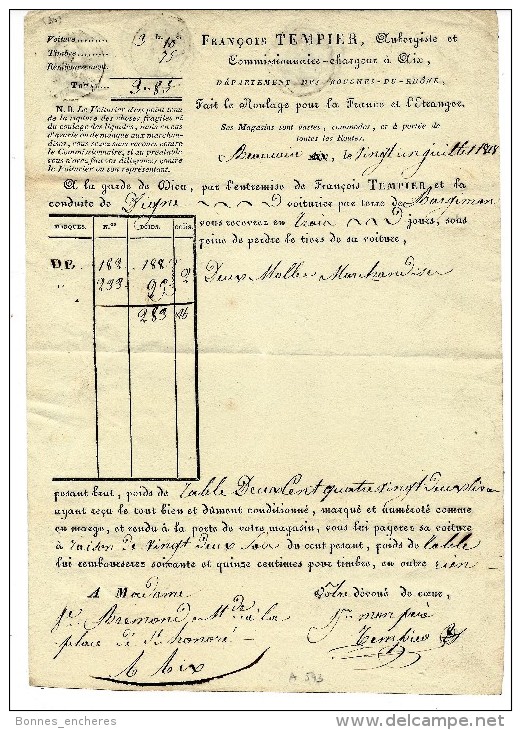 Voiture, 3 fr. 10
Timbre, 75
Remboursement,
TOTAL, 3-85
FRANÇOIS TEMPIER, Aubergiste et
Commissionnaire-chargeur à Aix,
DÉPARTEMENT DES BOUCHES-DU-RHÔNE,
Fait le Roulage pour la France et l'Etranger.
Ses Magasins sont vastes, commodes, et à portée de
toutes les Routes.
N. B. Le Voiturier den
de la rupture des choses fragiles et
du coulage des liquides, mais en cas
d'avarie ou de manque aux marchan-
dises, vous serez sans recours contre
le Commissionnaire, si au préalable
vous n'avez fait vos diligences contre
le Voiturier ou son représentant.
le vingt un juillet 1818
A la garde de Dieu, par l'entremise de François TEMPIER et la
conduite de voiturier par terre de Bargemon
vous recevrez en trois jours, sous
peine de perdre le tiers de sa voiture,
MARQUES. N.os POIDS. COLIS.
DP. 182 188 2
" 233 95
283
Deux Malles Marchandises
pesant brut, poids de table Deux Cent quatre vingt deux livres
ayant reçu le tout bien et dûment conditionné, marqué et numéroté comme
en marge, et rendu à la porte de votre magasin, vous lui payerez sa voiture
à raison de vingt deux sous du cent pesant, poids de table
lui rembourserez soixante et quinze centimes pour timbre, en outre rien
A Madame
Ve Bremond Mde
place de St honoré
à Aix
Votre dévoué de cœur,
pr mon père
Tempier
A 543
Bonnes_encheres
delcampe.net